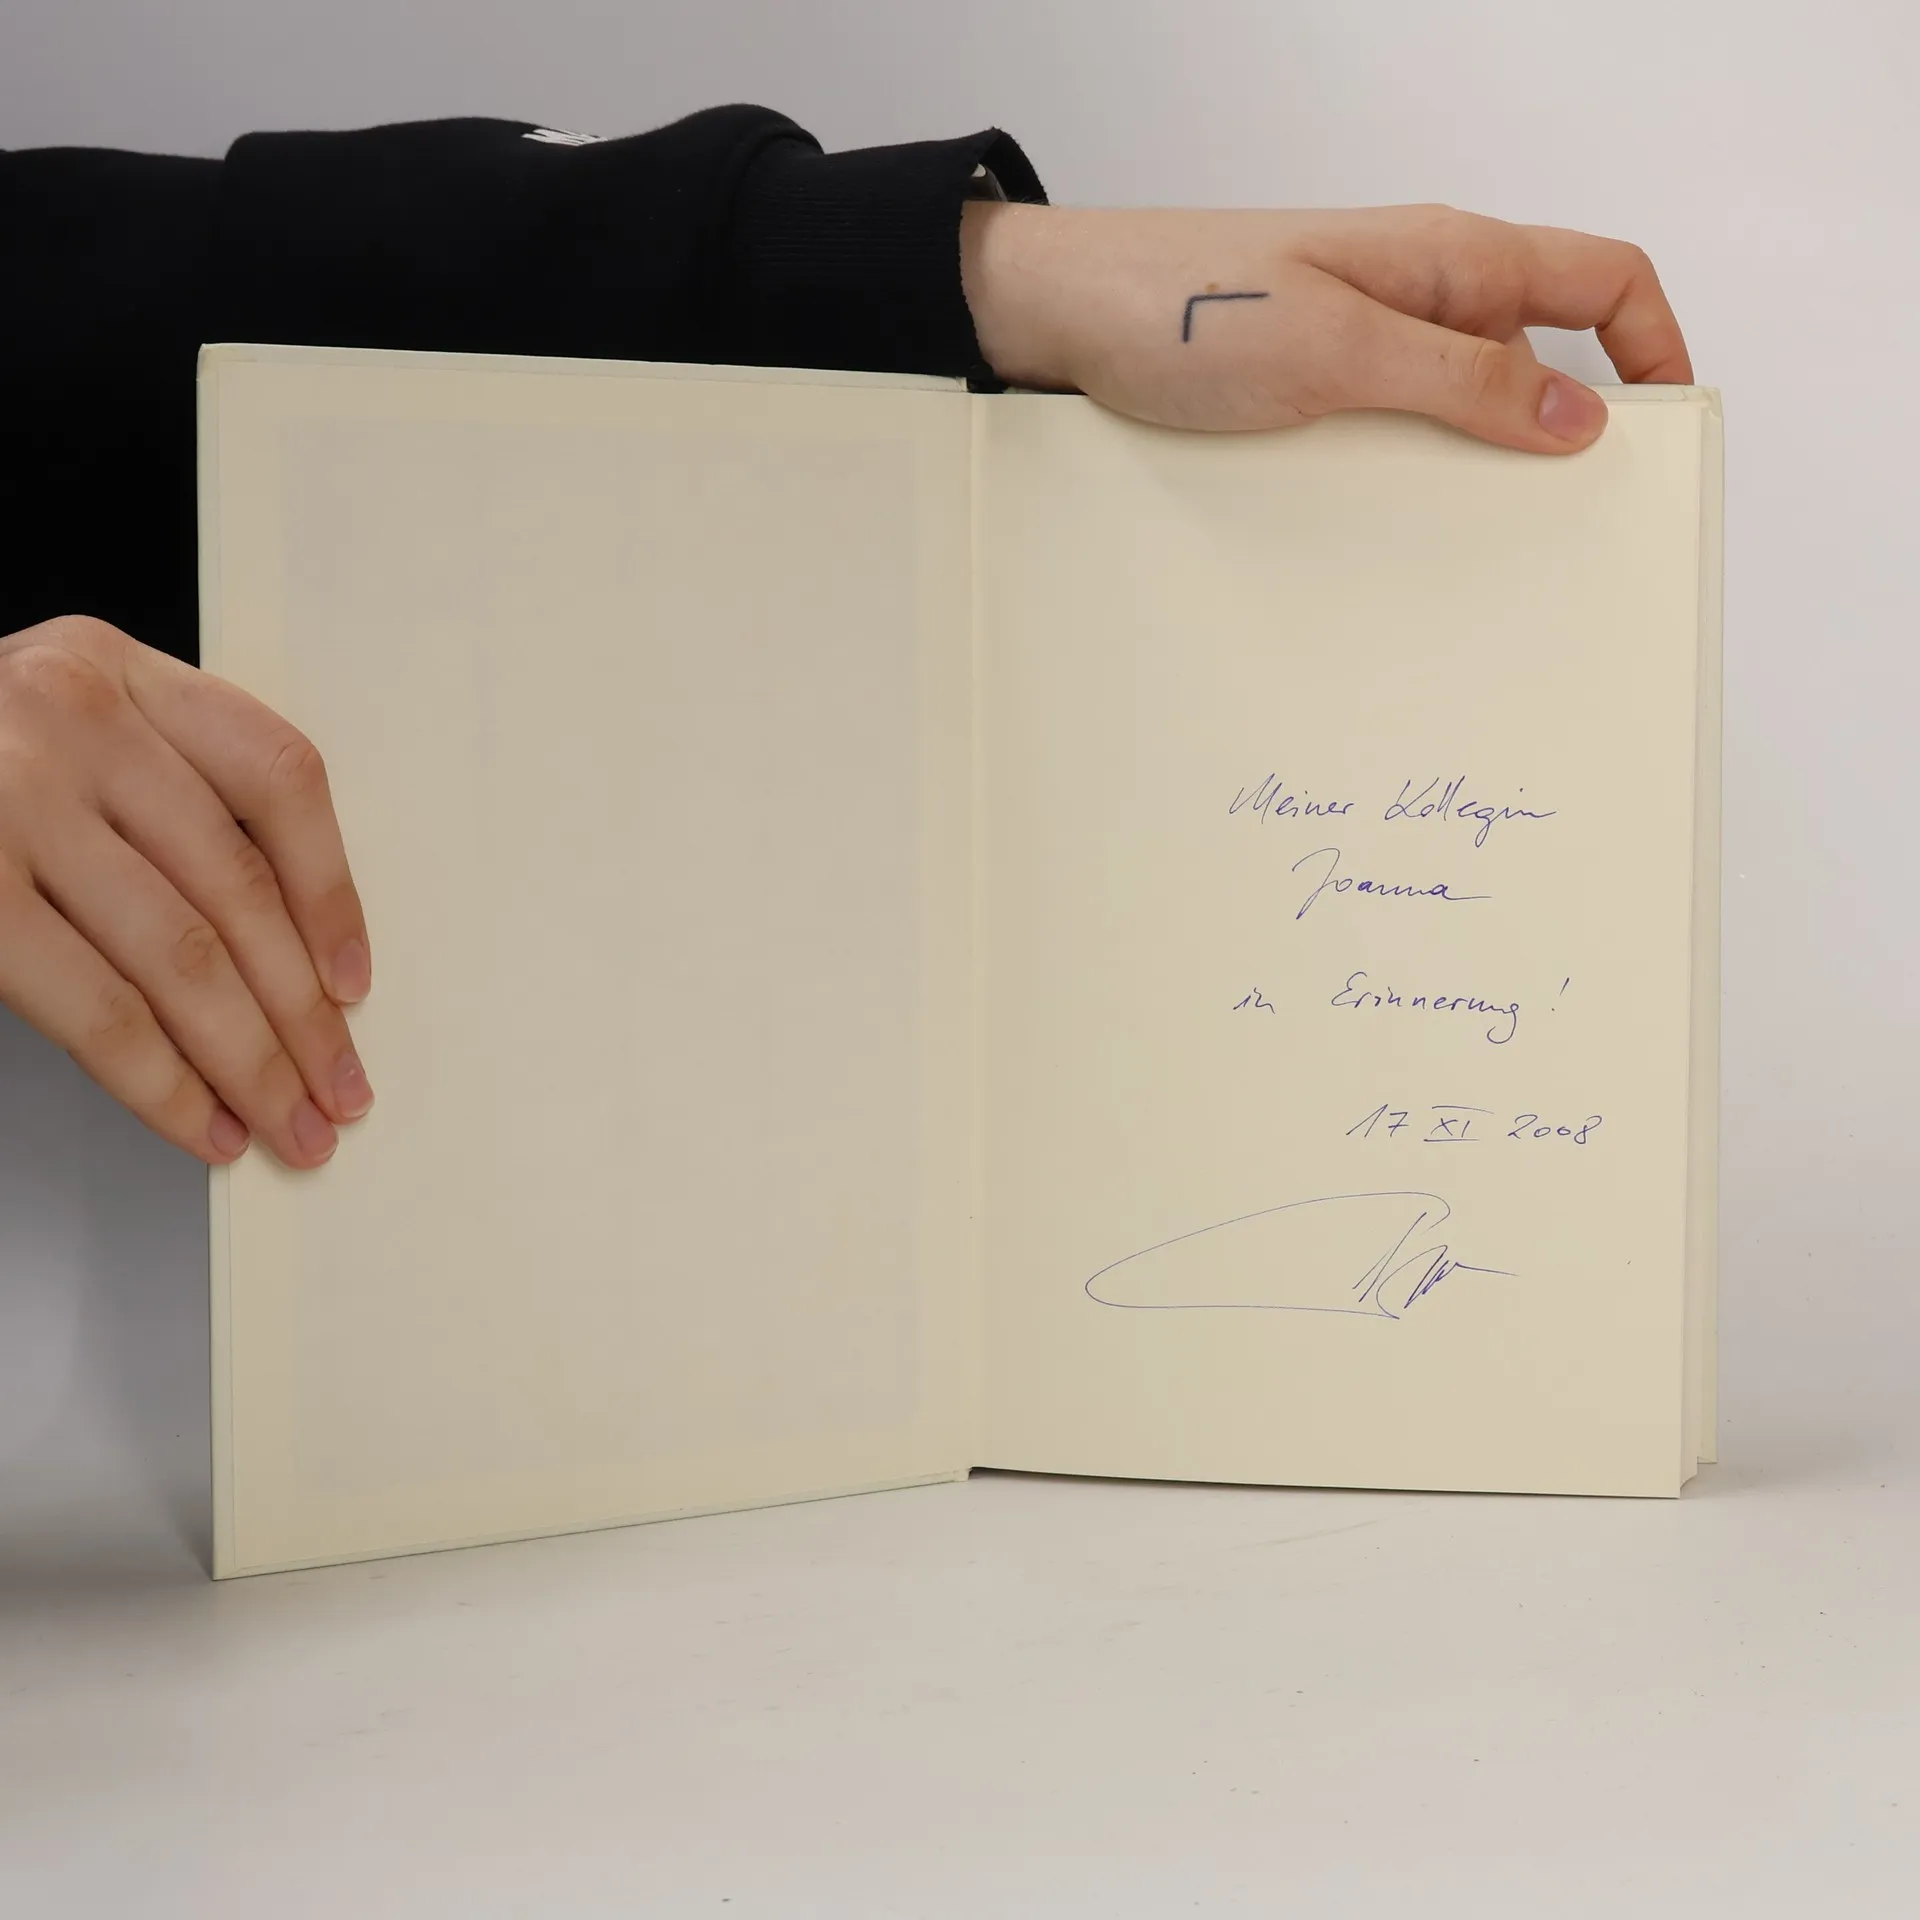 Meiner Kollegin
Joanna
in Erinnerung!
17 XI 2008